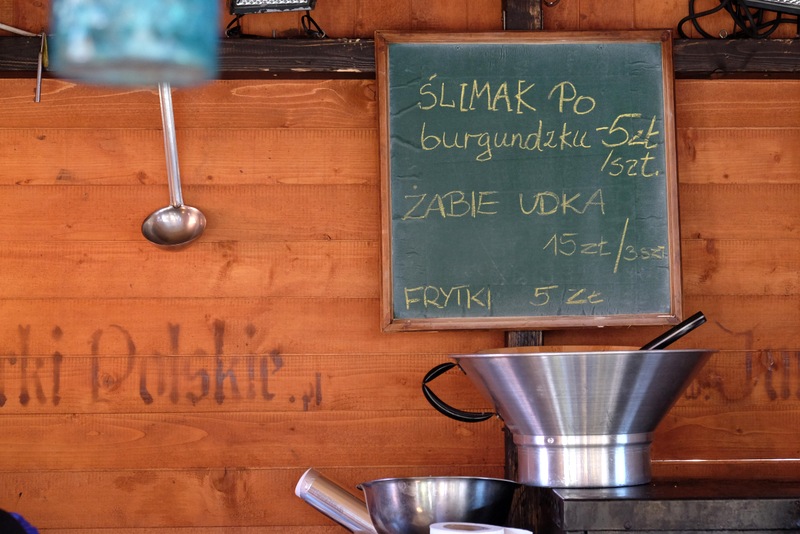 ŚLIMAK Po
burgundzku -5zł
/szt.
ŻABIE UDKA
15zł/3szt
FRYTKI 5 ZŁ
Polskie.pl